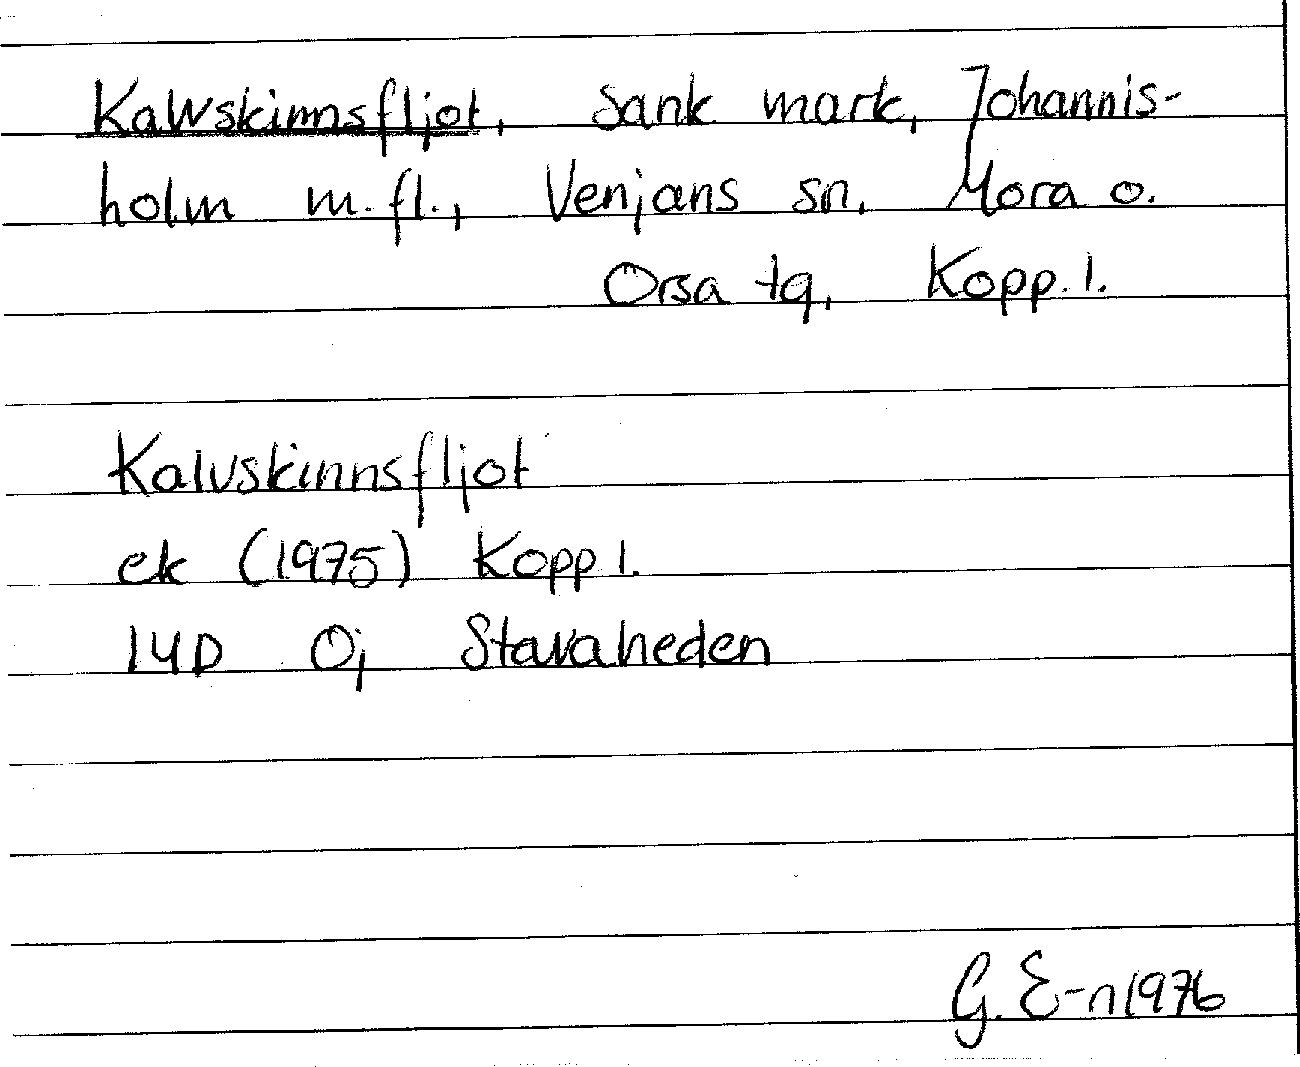 Kalvskinnsfljot, Sank mark, Johannis-
holm m.fl., Venjans sn, Mora o.
Orsa tg, Kopp. l.
Kalvskinnsfljot
ek (1975) Kopp l.
14D Oj Stavaheden
G. E-n 1976